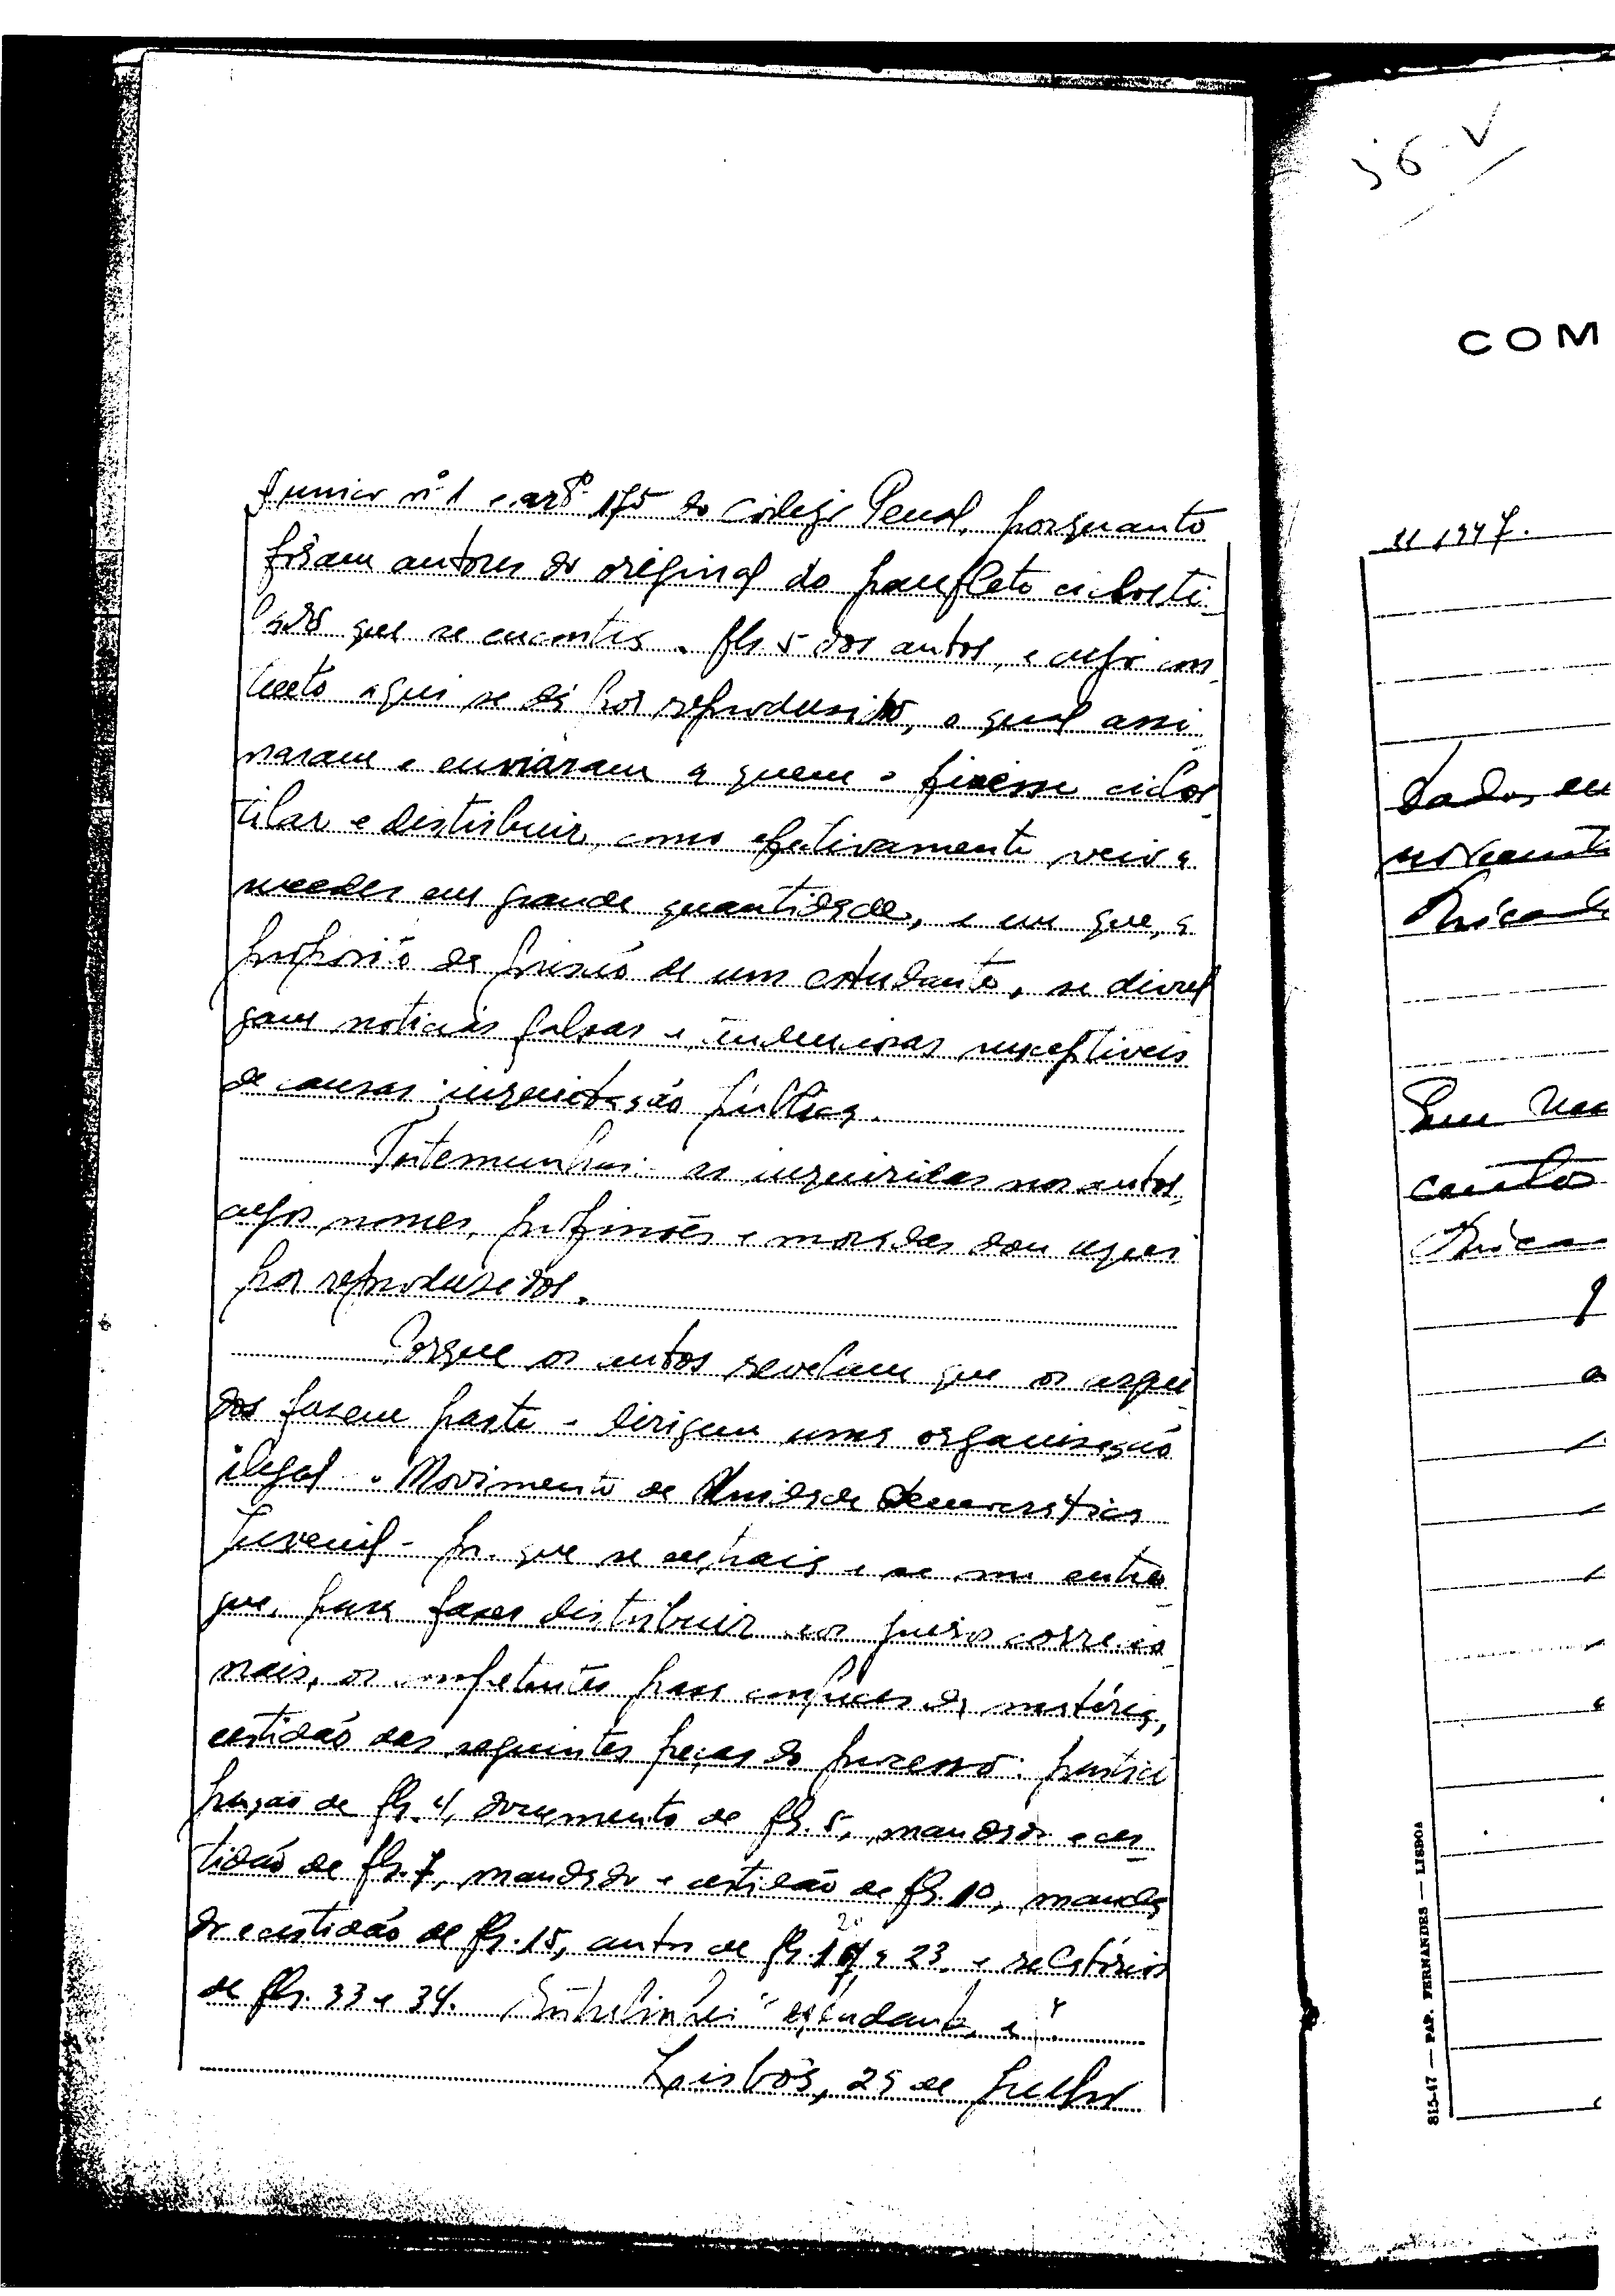 Junior nº 1 e artº 175 do Código Penal, porquanto
foram autores do original do panfleto ciclosti
lado que se encontra a fls. 5 dos autos, e cujo con
teúto aqui se dá por reproduzido, o qual assi
naram e enviaram a quem o fizesse ciclos
tilar e distribuir, como efetivamente veio a
suceder em grande quantidade, e em que, a
propósito da prisão de um estudante, se divul
gam noticias falsas e tendenciosas susceptíveis
de causar inquietação pública.
Testemunhas: as inquiridas nos autos,
cujos nomes, profissões e moradas dou aqui
por reproduzidos.
Porque os autos revelam que os argui
dos fazem parte e dirigem uma organização
ilegal - o Movimento de Unidade Democrática
Juvenil - pr. que se extraia e se me entre
gue, para fazer distribuir aos juizos correcio
nais, os competentes para conhecer da matéria,
certidão das seguintes peças do processo: partici
pação de fls. 4, documento de fls. 5, mandado e cer
tidão de fls. 7, mandado e certidão de fls. 10, manda
do e certidão de fls. 15, autos de fls. 19 a 23 e relatórios
de fls. 33 e 34. Entrelinhei "estudante, e".
Lisboa, 25 de Julho
56-V
COM
1947.
dados em
Ricard
Em
815-47 — PAP. FERNANDES — LISBOA